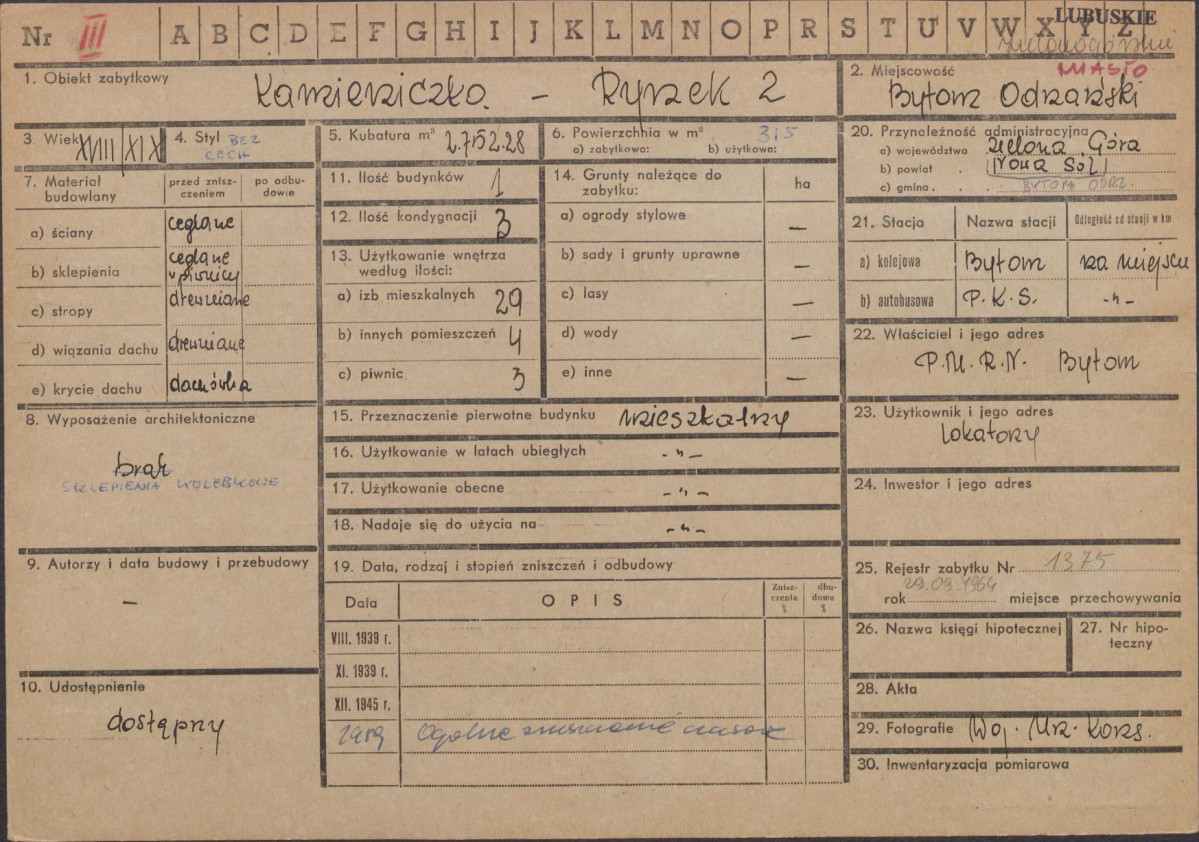 Nr III A B C D E F G H I J K L M N O P R S T U V W X Y Z LUBUSKIE
MIASTO
1. Obiekt zabytkowy Kamieniczka - Rynek 2
2. Miejscowość Bytom Odrzański
3. Wiek XVIII/XIX
4. Styl BEZ CECH
5. Kubatura m³ 2.752.28
6. Powierzchnia w m² 315
a) zabytkowa: b) użytkowa:
7. Materiał budowlany
przed zniszczeniem
po odbudowie
a) ściany ceglane
b) sklepienia ceglane w piwnicy
c) stropy drewniane
d) wiązania dachu drewniane
e) krycie dachu dachówka
8. Wyposażenie architektoniczne
brak
SKLEPIENIA KOLEBKOWE
9. Autorzy i data budowy i przebudowy
-
10. Udostępnienie
dostępny
11. Ilość budynków 1
12. Ilość kondygnacji 3
13. Użytkowanie wnętrza według ilości:
a) izb mieszkalnych 29
b) innych pomieszczeń 4
c) piwnic 3
14. Grunty należące do zabytku: ha
a) ogrody stylowe -
b) sady i grunty uprawne -
c) lasy -
d) wody -
e) inne -
15. Przeznaczenie pierwotne budynku mieszkalny
16. Użytkowanie w latach ubiegłych -"-
17. Użytkowanie obecne -"-
18. Nadaje się do użycia na -"-
19. Data, rodzaj i stopień zniszczeń i odbudowy
Data OPIS Zniszczenia % dbudowa %
VIII. 1939 r.
XI. 1939 r.
XII. 1945 r.
1959 Ogólne
20. Przynależność administracyjna
a) województwo Zielona Góra
b) powiat Nowa Sól
c) gmina BYTOM ODRZ.
21. Stacja Nazwa stacji Odległość od stacji w km
a) kolejowa Bytom na miejscu
b) autobusowa P.K.S. -"-
22. Właściciel i jego adres
P.M.R.N. Bytom
23. Użytkownik i jego adres
Lokatorzy
24. Inwestor i jego adres
25. Rejestr zabytku Nr 1375
rok 29.09.1964 miejsce przechowywania
26. Nazwa księgi hipotecznej
27. Nr hipoteczny
28. Akta
29. Fotografie Woj. Urz. Kons.
30. Inwentaryzacja pomiarowa